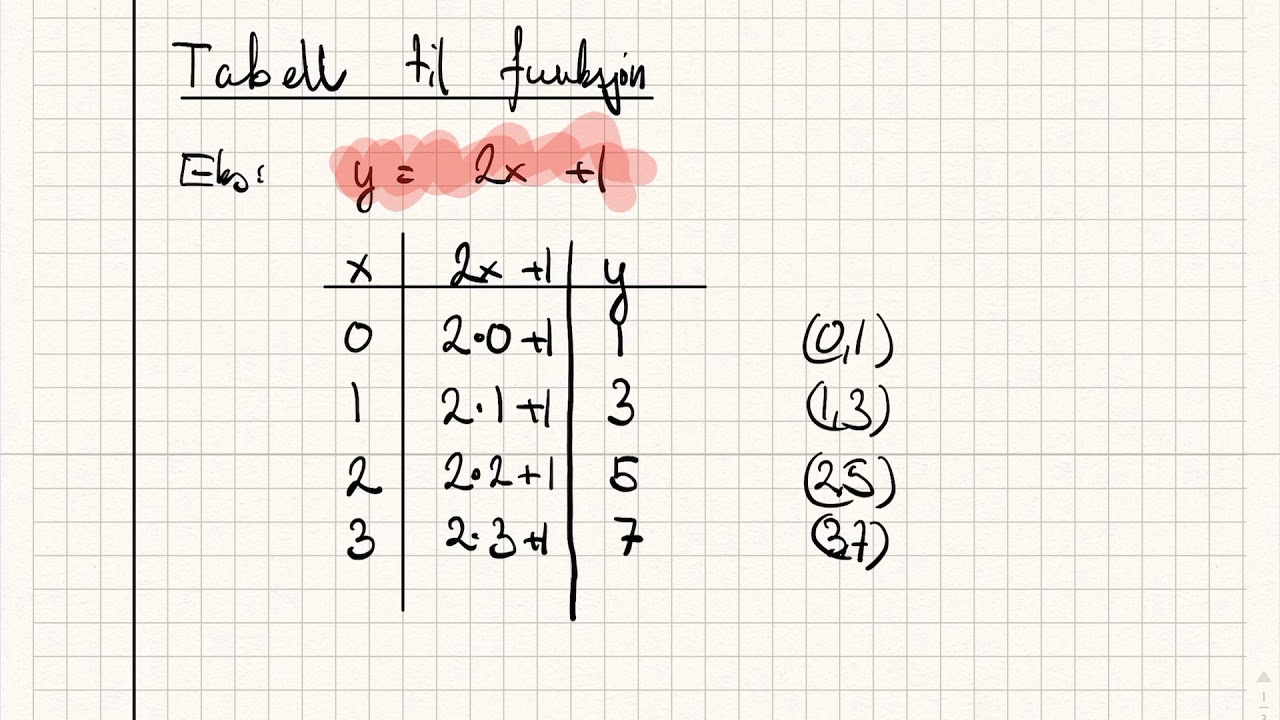 Tabell til funksjon
Eks: y = 2x +1
x 2x +1 y
0 2·0+1 1 (0,1)
1 2·1+1 3 (1,3)
2 2·2+1 5 (2,5)
3 2·3+1 7 (3,7)